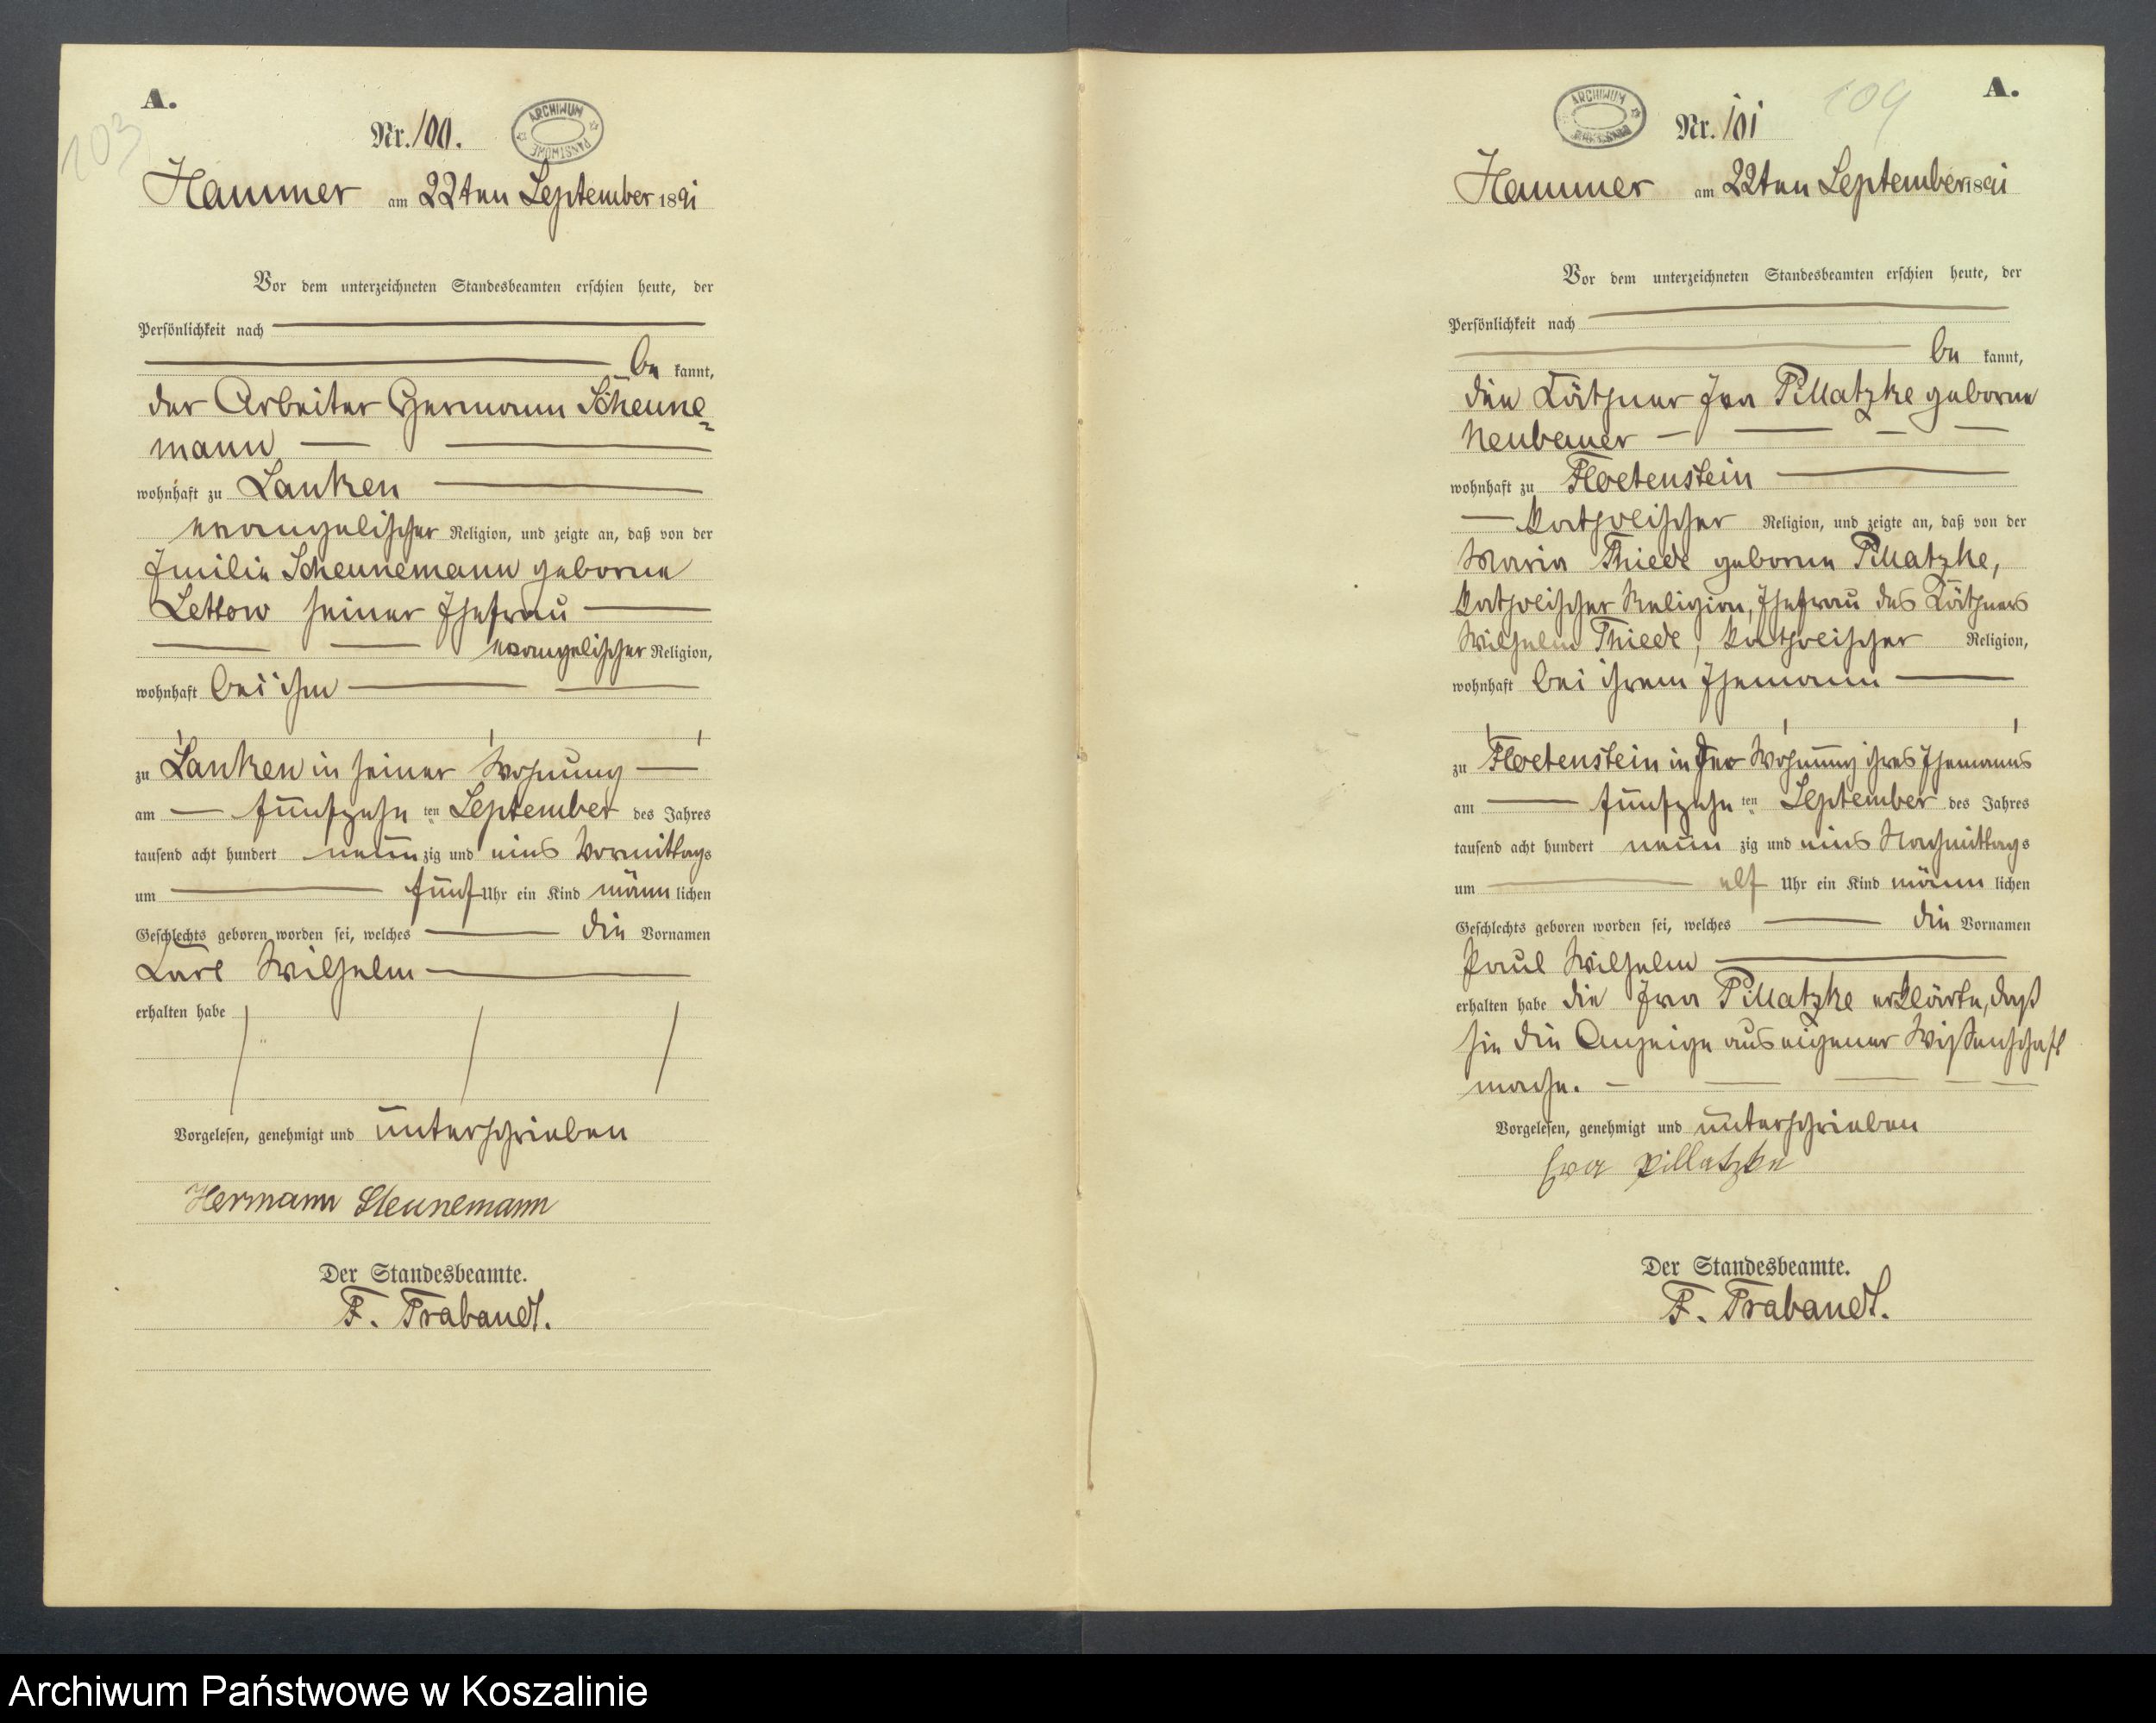 A.
103
Nr. 100.
ARCHIWUM PAŃSTWOWE
Hammer am 22ten September 1891
Vor dem unterzeichneten Standesbeamten erschien heute, der
Persönlichkeit nach
be kannt,
der Arbeiter Hermann Scheune=
mann
wohnhaft zu Lanken
evangelischer Religion, und zeigte an, daß von der
Emilie Scheunemann geborne
Lettow seiner Ehefrau
evangelischer Religion,
wohnhaft bei ihm
zu Lanken in seiner Wohnung
am fünfzehn ten September des Jahres
tausend acht hundert neun zig und eins Vormittags
um fünf Uhr ein Kind männ lichen
Geschlechts geboren worden sei, welches die Vornamen
Carl Wilhelm
erhalten habe
Vorgelesen, genehmigt und unterschrieben
Hermann Scheunemann
Der Standesbeamte.
F. Trabandt.
A.
109
Nr. 101
ARCHIWUM
Hammer am 22ten September 1891
Vor dem unterzeichneten Standesbeamten erschien heute, der
Persönlichkeit nach
be kannt,
die Käthner Eva Pillatzke geborne
Neubauer
wohnhaft zu Floetenstein
katholischer Religion, und zeigte an, daß von der
Maria Thiede geborne Pillatzke,
katholischer Religion, Ehefrau des Käthners
Wilhelm Thiede, katholischer Religion,
wohnhaft bei ihrem Ehemann
zu Floetenstein in der Wohnung ihres Ehemanns
am fünfzehn ten September des Jahres
tausend acht hundert neun zig und eins Nachmittags
um elf Uhr ein Kind männ lichen
Geschlechts geboren worden sei, welches die Vornamen
Paul Wilhelm
erhalten habe die Eva Pillatzke erklärte, daß
sie die Anzeige aus eigener Wissenschaft
mache.
Vorgelesen, genehmigt und unterschrieben
Eva Pillatzke
Der Standesbeamte.
F. Trabandt.
Archiwum Państwowe w Koszalinie